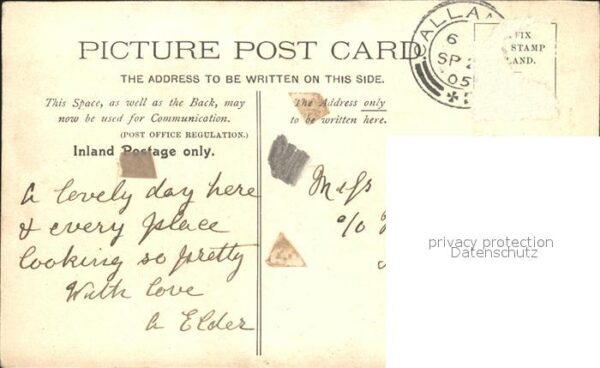 PICTURE POST CARD
THE ADDRESS TO BE WRITTEN ON THIS SIDE.
This Space, as well as the Back, may
now be used for Communication.
(POST OFFICE REGULATION.)
Inland Postage only.
The Address only
to be written here.
CALLA
6
SP 2
05
FIX
STAMP
LAND.
A lovely day here
& every place
looking so pretty
With love
A Elder
Miss
c/o
privacy protection
Datenschutz